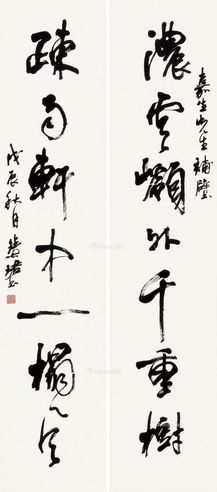 嘉生先生補壁
濃雲嶺外千重樹
疎雨軒中一榻風
戊辰秋月慧珺